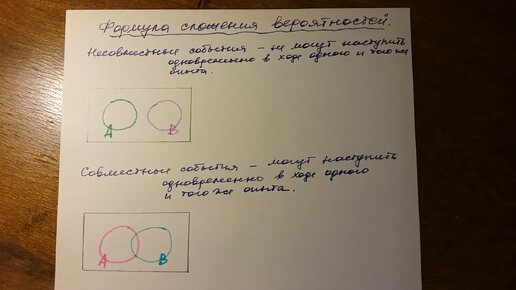 Формула сложения вероятностей.
Несовместные события – не могут наступить
одновременно в ходе одного и того же
опыта.
A B
Совместные события – могут наступить
одновременно в ходе одного
и того же опыта.
A B